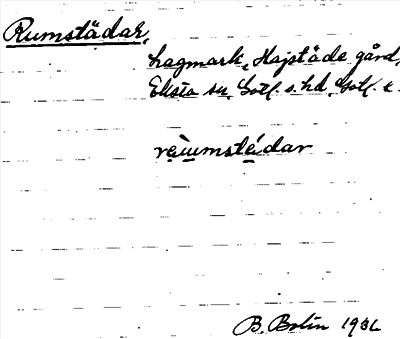 Rumstädar,
hagmark, Hajstäde gård,
Eksta sn. Gotl. s. hd. Gotl. l.
ręi̯umstę́dar
B. Bolin 1936